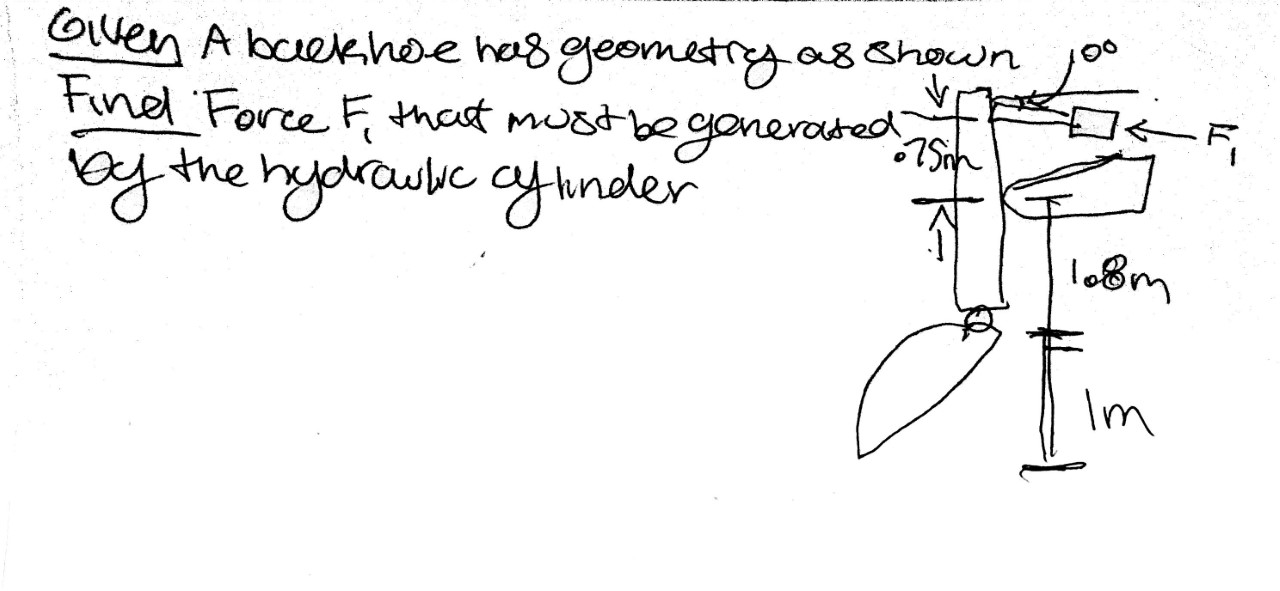 Given A backhoe has geometry as shown
Find Force F1 that must be generated
by the hydraulic cylinder
10°
.75m
F1
1.8m
1m